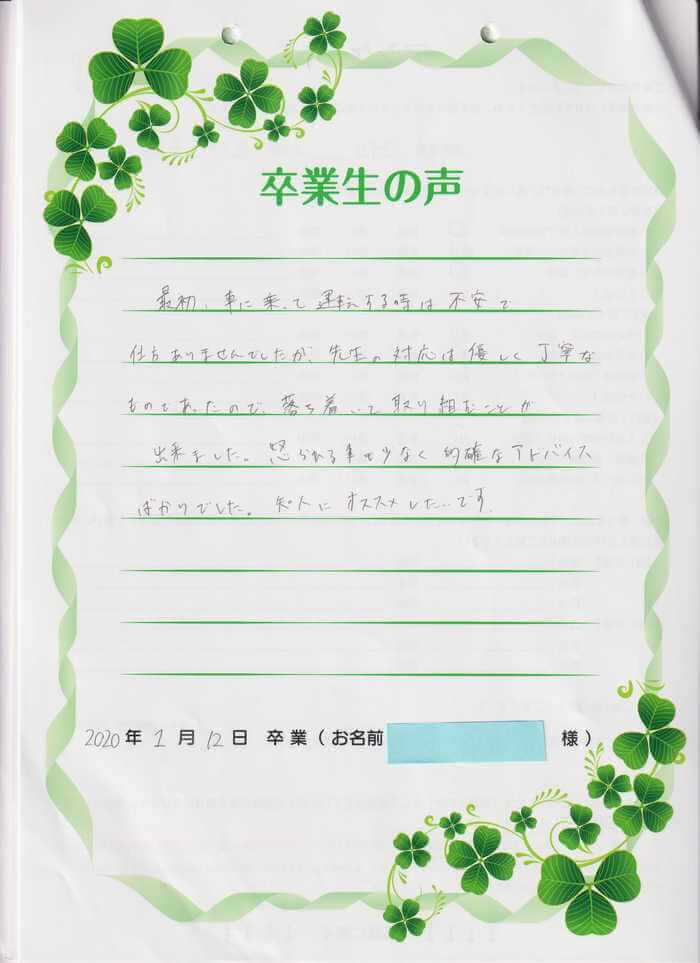 卒業生の声
最初、車に乗って運転する時は不安で
仕方ありませんでしたが、先生の対応は優しく丁寧な
ものであったので、落ち着いて取り組むことが
出来ました。怒られる事も少なく的確なアドバイス
ばかりでした。知人にオススメしたいです。
2020年1月12日 卒業(お名前 様)